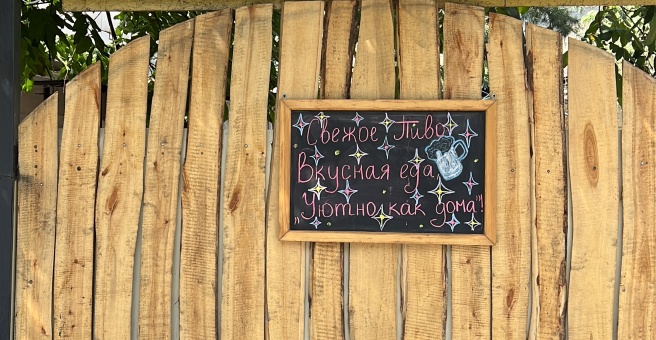 Свежое Пиво
Вкусная еда,
„Уютно как дома"!